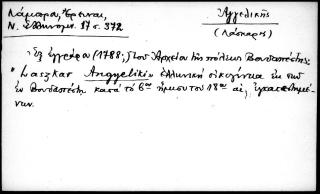 Λάμπρου, Ἔρευναι,
Ν. Ἑλληνομν. 17 σ. 372
Ἀγγελίκης
(Λάσκαρις)
Ἐξ ἐγγράφου (1788) τοῦ Ἀρχείου τῆς πόλεως Βουδαπέστης:
"Laszkar Angyeliki" ἑλληνικὴ οἰκογένεια ἐκ τῶν
ἐν Βουδαπέστῃ κατὰ τὸ βον ἥμισυ τοῦ 18ου αἰ. ἐγκατεστημέ-
νων.